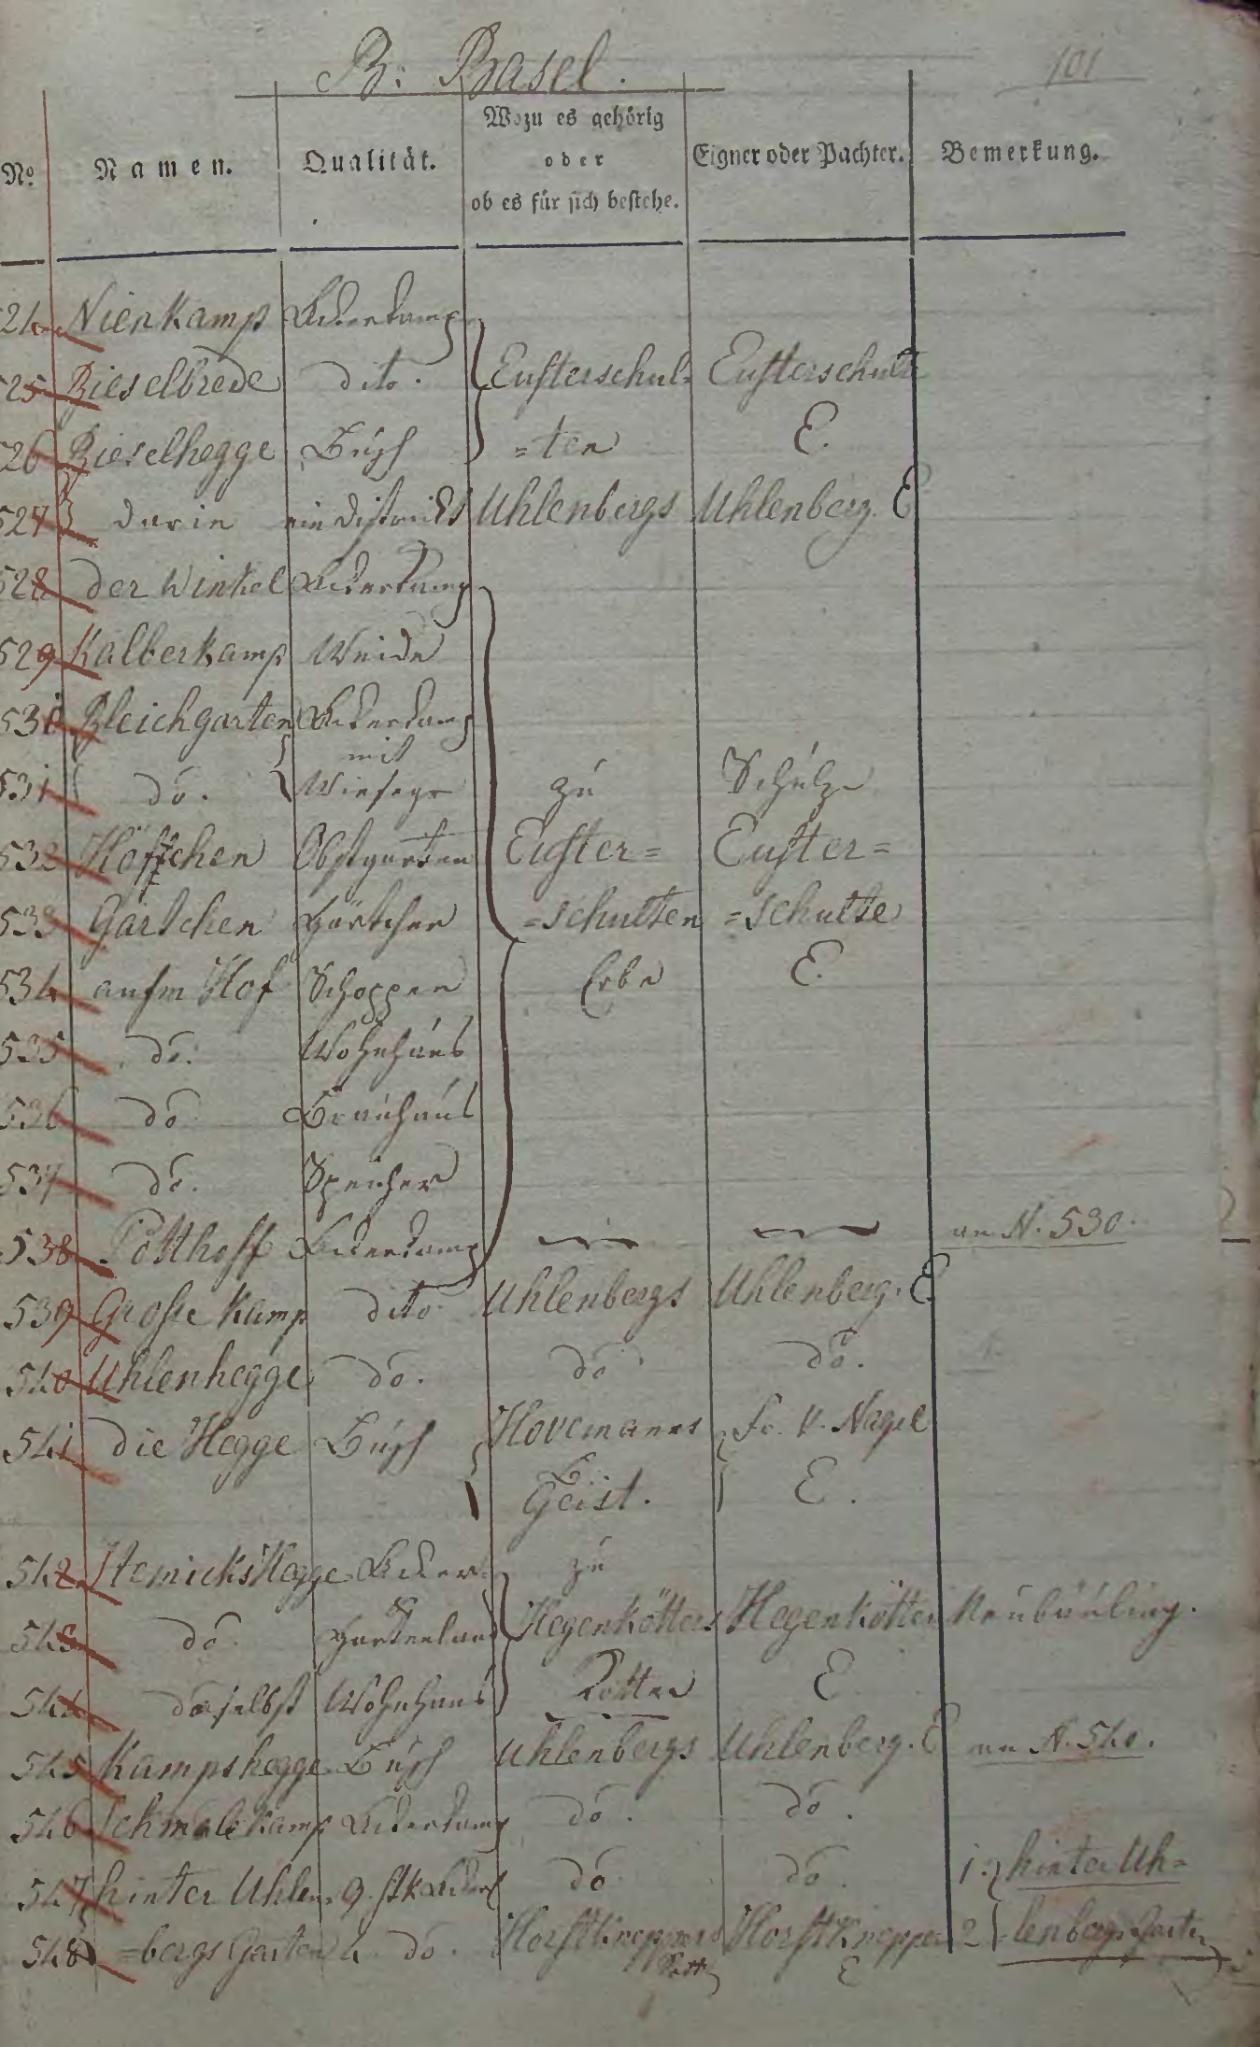 B: Basel.
101
No. Namen. Qualität. Wozu es gehörig oder ob es für sich bestehe. Eigner oder Pachter. Bemerkung.
524 Nienkamp Ackerkamp
525 Rieselbrede dito. Eusterschul= Eusterschulte
526 Rieselhegge Busch =ten E.
527 darin ein District Uhlenbergs Uhlenberg. E
528 der Winkel Ackerkamp
529 Kalberkamp Weide
530 Bleichgarten Ackerkamp
mit
531 do. Wiesege zu Schulze
532 Höffchen Obstgarten Euster= Euster=
533 Gärtchen Gärtchen =schulten =schulte
534 aufm Hof Schoppen Erbe E.
535 do. Wohnhaus
536 do Brauhaus
537 do. Speicher
538 Potthoff Ackerkamp an N. 530.
539 Grosse Kamp dito Uhlenbergs Uhlenberg. E.
540 Uhlenhegge do. do do.
541 die Hegge Busch Hovemanns Fr. v. Nagel
Geist. E.
542 Hegge Acker zu
& 
543 do. Gartenland Hegenkötters Hegenkötter Neubäuling.
544 daselbst Wohnhaus Kotten E
545 Kampshegge Busch Uhlenbergs Uhlenberg. E an N. 540.
546 Schmale Kamp Ackerkamp do. do.
547 hinter Uhlen= 9. stk Acker do do. 1. hinter Uh=
548 =bergs Garten 4. do. Horstkneppers Horstknepper 2 =lenbergs Garten
Kott. E